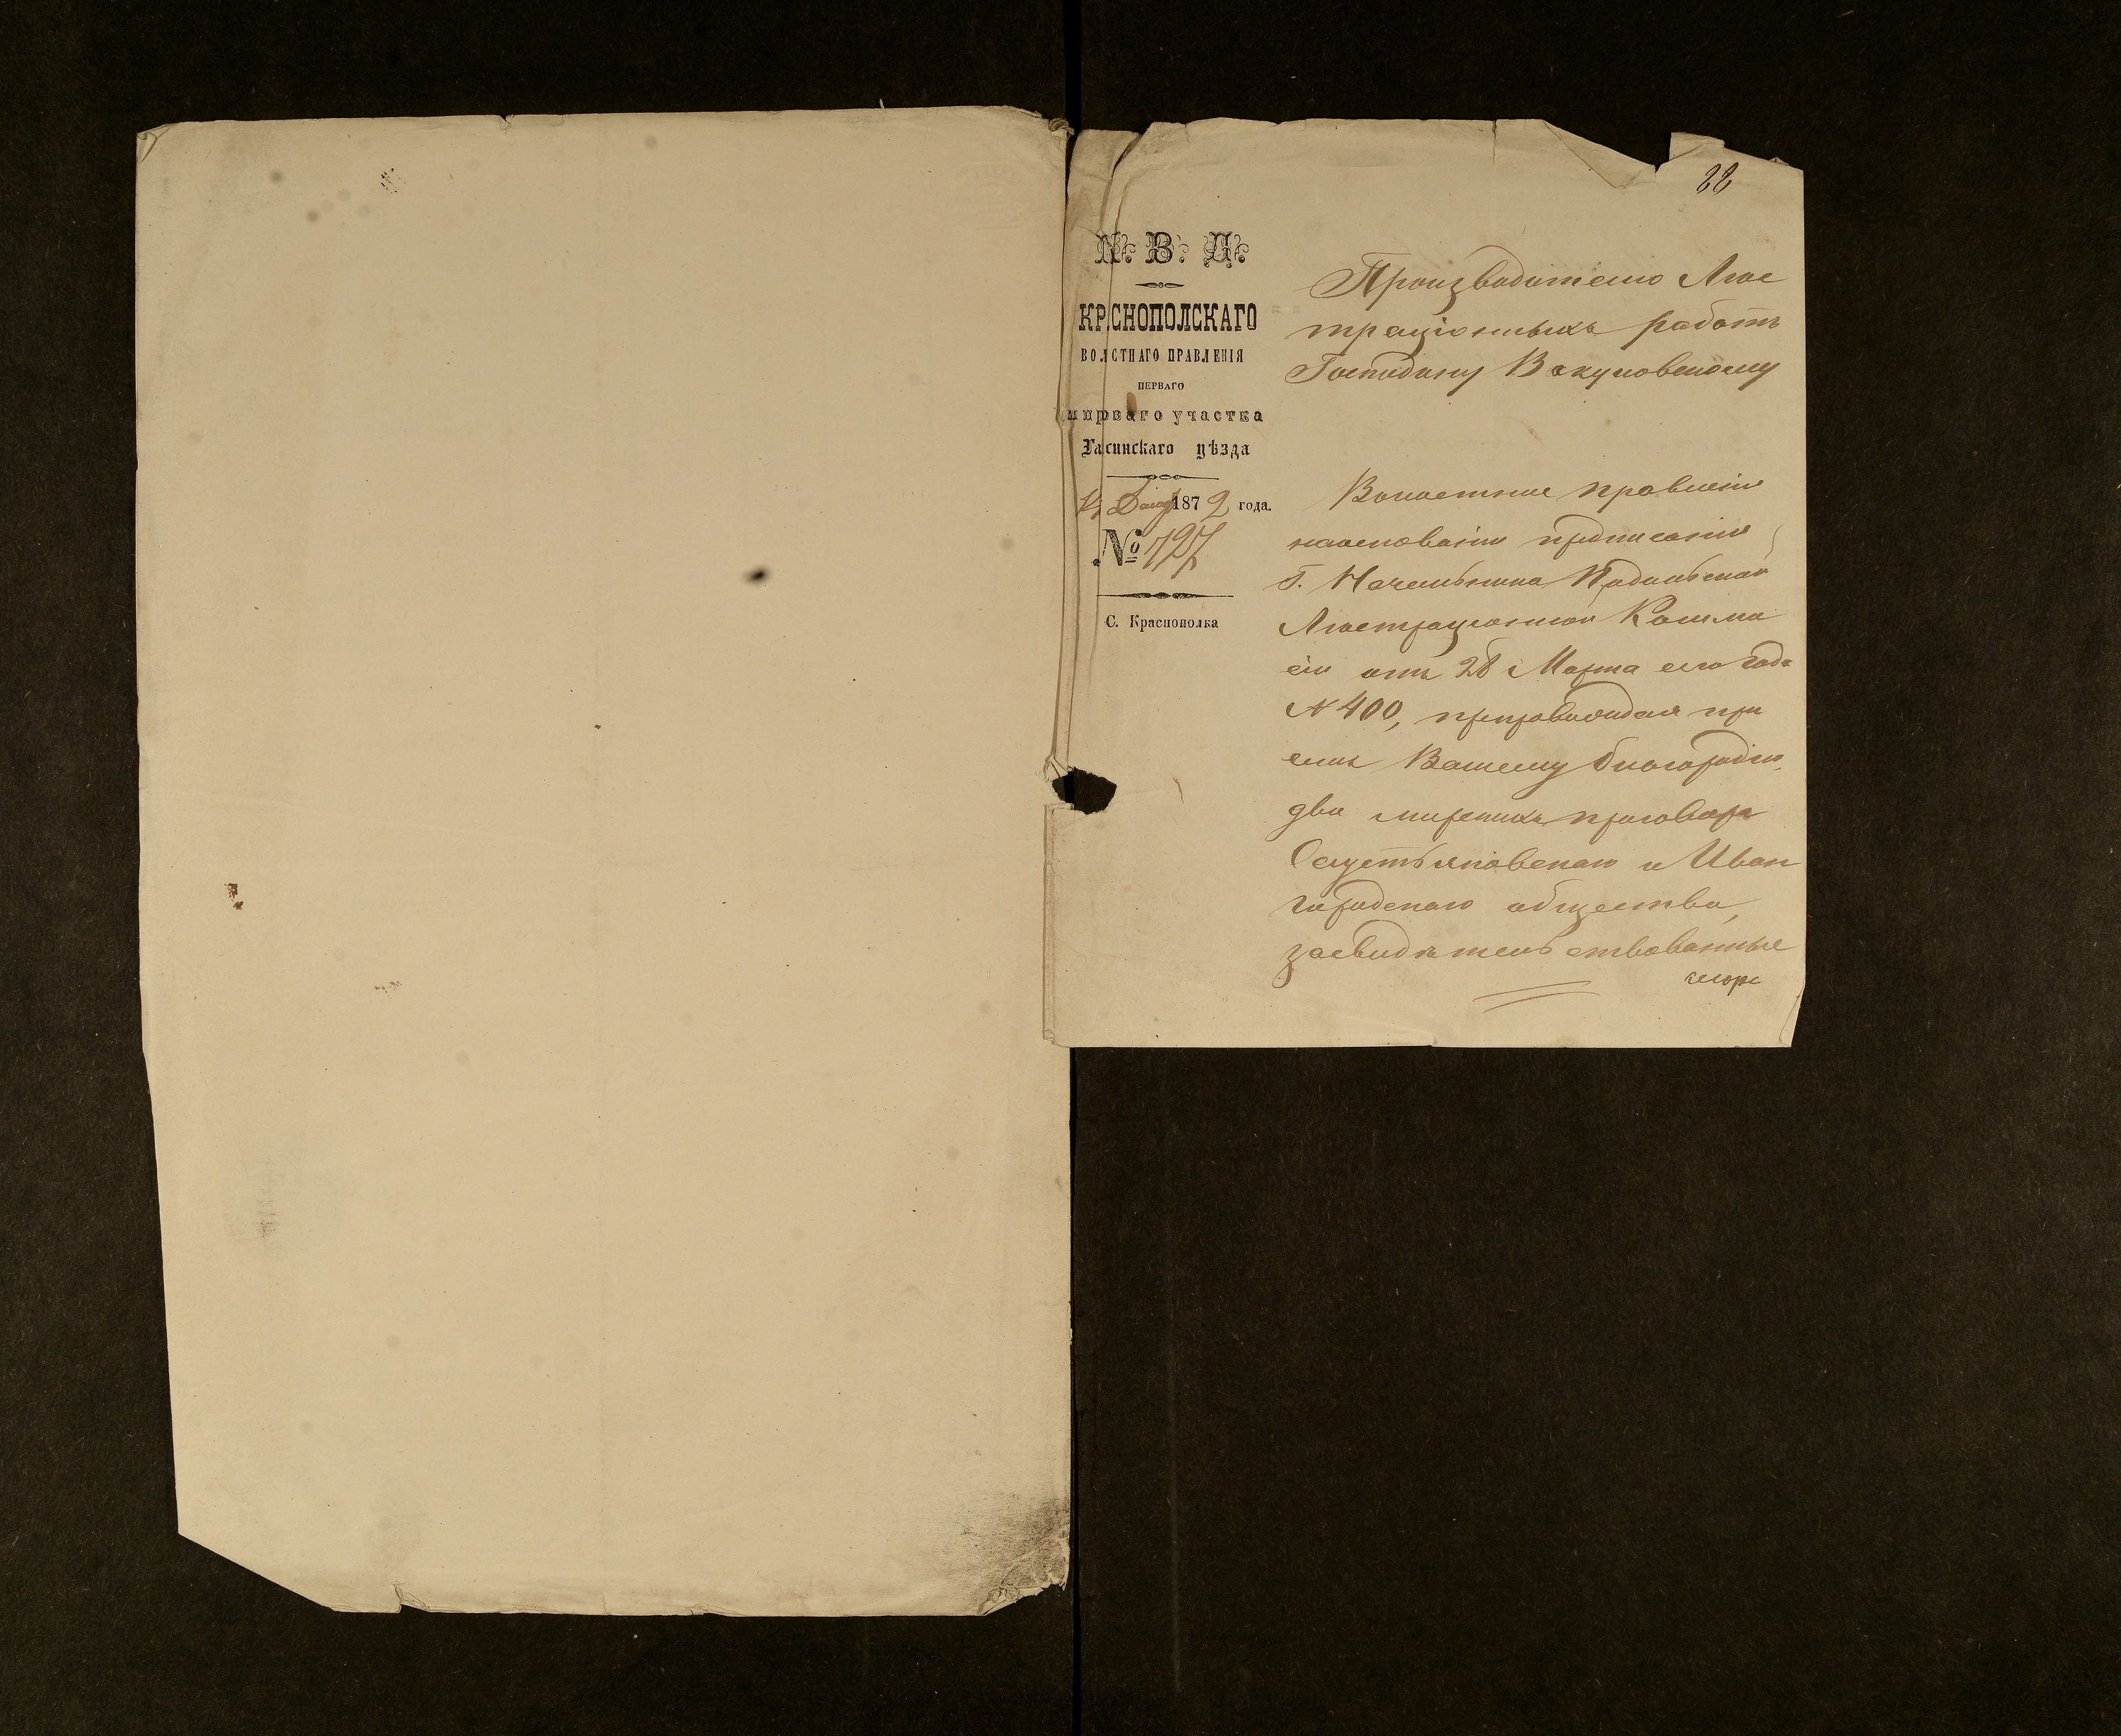 22
М. В. Д.
КРАСНОПОЛСКАГО
ВОЛОСТНАГО ПРАВЛЕНІЯ
ПЕРВАГО
мироваго участка
Гайсинскаго уѣзда
1872 года.
№ 727
С. Краснополка
Производителю Люс
траціонныхъ работъ
Господину Вакуловскому
Волостное правленіе
наоснованіи предписанія
Г. Начальника Подольской
Люстраціонной Комми
сіи отъ 28 Марта сего года
N 400, препровождая при
семъ Вашему благородію,
два мирскихъ приговора
и Иван
городскаго общества,
засвидѣтельствованные